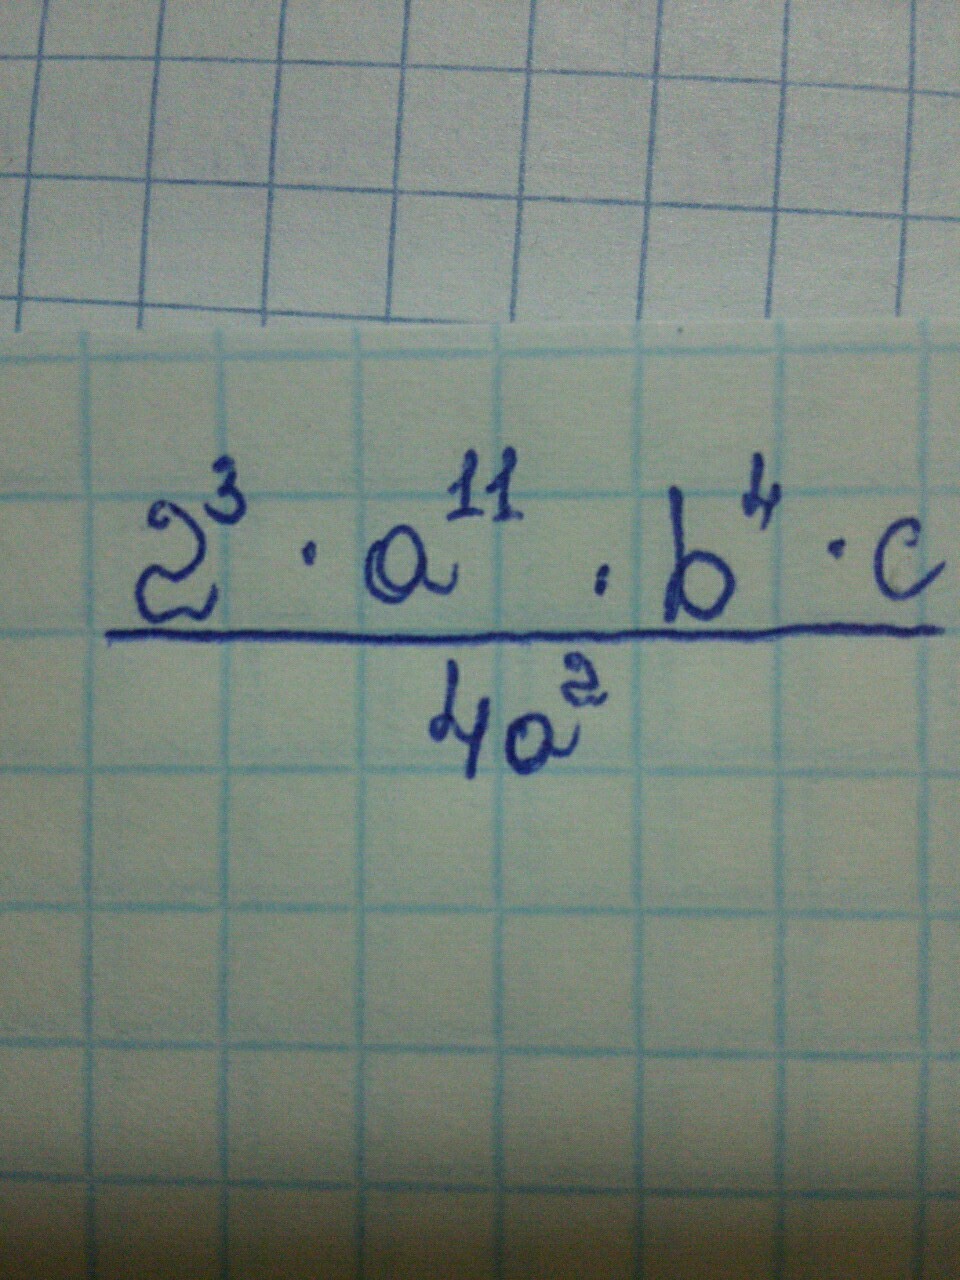 2³ · a¹¹ · b⁴ · c
4a²